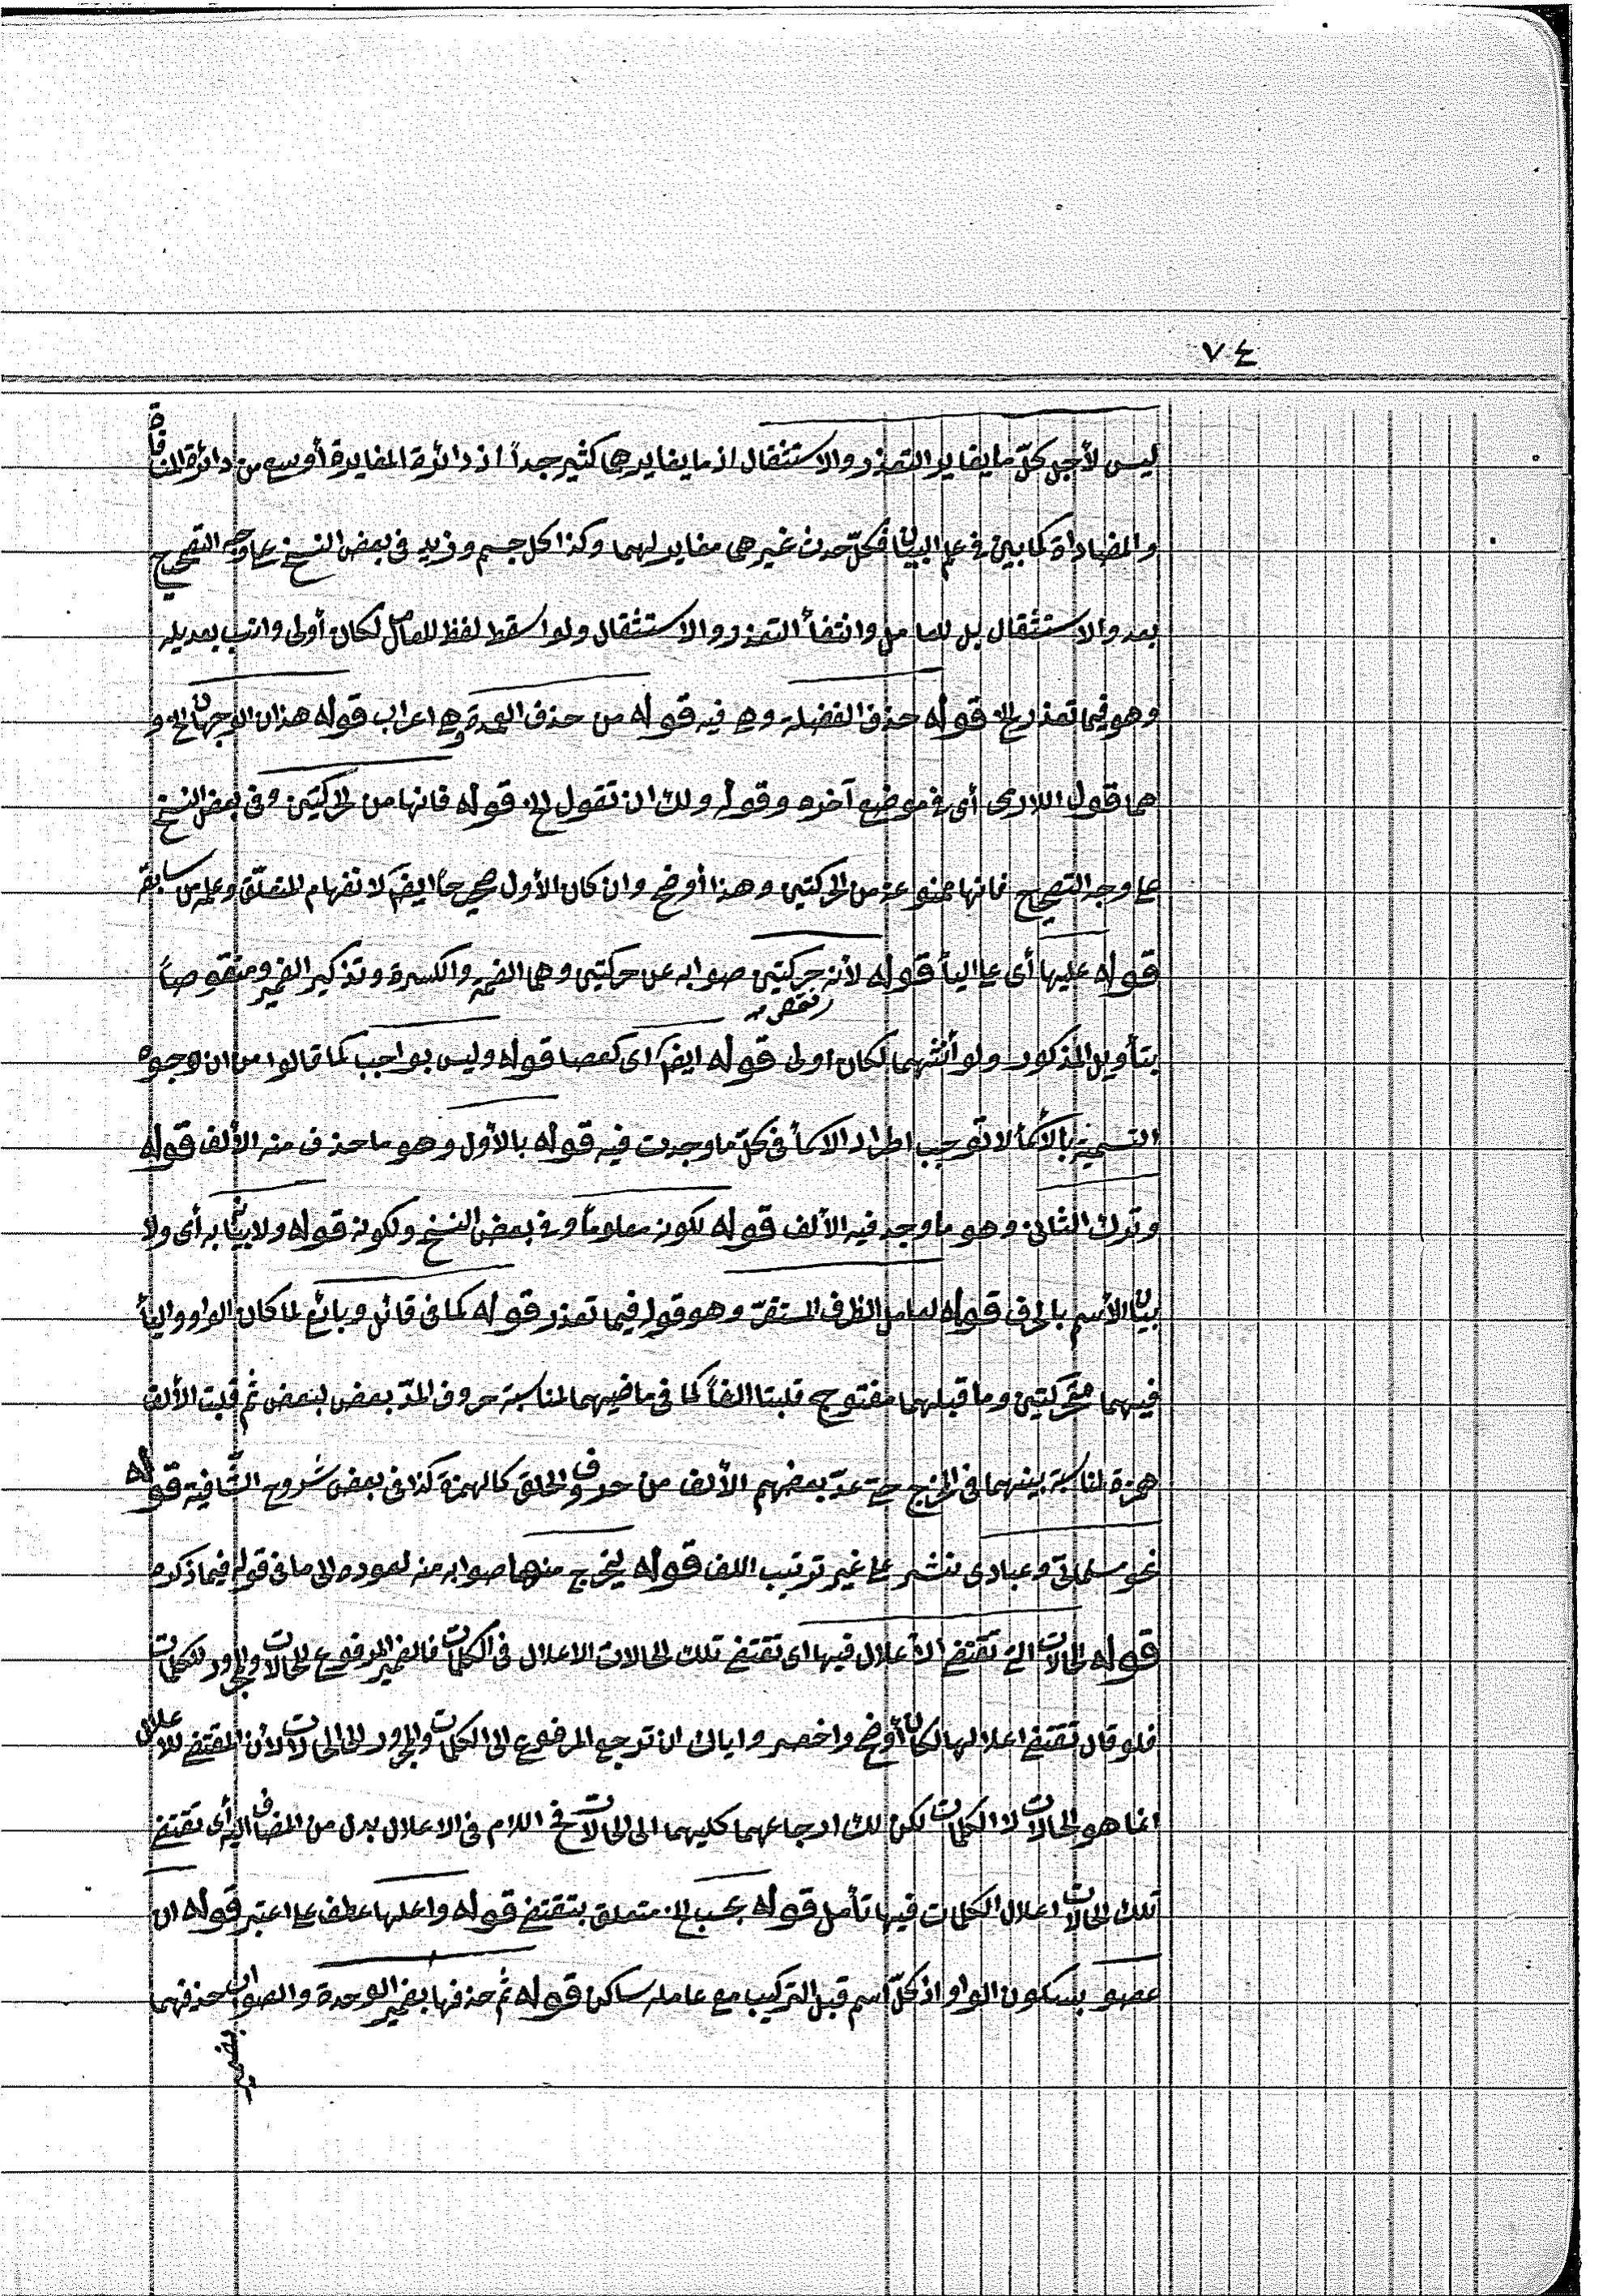 ٧٤
ليس لأجل كلّ ما يغاير التعذر والاستثقال اذ ما يغايرهما كثير جداً اذ دائرة المغايرة أوسع من دائرة المنافاة
والمضاداة كما بين في علم البيان فكلّ حدث غيرهما مغاير لهما وكذا كل جسم وزيد في بعض النسخ على وجه التصحيح
بعد والاستثقال بل للعامل وانتفاء التعذر والاستثقال ولو اسقط لفظ للعامل لكان أولى وانسب بعديله
وهو فيما تعذر الخ قوله حذف الفضلة وهو فيه قوله من حذف العمدة وهو اعراب قوله هذان الوجهان الخ و
هما قول اللارى أى في موضع آخره وقوله ولك ان تقول الخ قوله فانها من الحركتين وفى بعض النسخ
على وجه التصحيح فانها ممنوعة من الحركتين وهذا أوضح وان كان الأول صحيحاً ايضً لانفهام المتعلّق وعلمه من سابقه
قوله عليها أى على الياء قوله لأنه حركتين صوابه عن حركتين وهما الضمة والكسرة وتذكير الضمير ومنقوصاً
نقص
بتأويل المذكور ولو أنثهما لكان اولى قوله ايضً اى كعصا قوله وليس بواجب كما قالوا من ان وجوه
التسمية بالأسماء لا توجب اطراد الاسماء فى كلّ ما وجدت فيه قوله بالأول وهو ما حذف منه الألف قوله
وترك الثانى وهو ما وجد فيه الألف قوله لكونه معلوماً وفي بعض النسخ ولكونه قوله ولا بيان به أى ولا
بيان الأسم بالحرف قوله لعامل الظرف المستقرّ وهو قوله فيما تعذر قوله كما فى قائل وبائع لما كان الواو والياء
فيهما متحركتين وما قبلهما مفتوح قلبتا الفاً كما فى ماضيهما لمناسبة حروف المدّ بعض لبعض ثم قلبت الألف
همزة لمناسبة بينهما فى المخرج حتى عدّ بعضهم الألف من حروف الحلق كالهمزة كذا فى بعض شروح الشافية قوله
نحو مسلماتى وعبادى نشر على غير ترتيب اللف قوله يخرج منهما صوابه منه لعوده الى ما فى قوله فيما ذكره
قوله الحالات التى تقتضى الأعلال فيها اى تقتضى تلك الحالات الاعلال فى الكلمات فالضمير المرفوع للحالات والمجرور للكلمات
فلو قال تقتضى اعلالها لكان أوضح واخصر واياك ان ترجع المرفوع الى الكلمات والمجرور الى الحالات لأن المقتضى للاعلال
انما هو الحالات لا الكلمات لكن لك ارجاعهما كليهما الى الحالات فح اللام فى الاعلال بدل من المضاف اليه أى تقتضى
تلك الحالات اعلال الكلمات فيها تأمل قوله بحسب الخ متعلق بتقتضى قوله واعلها عطف على اعتبر قوله ان
عصو بسكون الواو اذ كلّ اسم قبل التركيب مع عامله ساكن قوله ثم حذفها بضمير الوحدة والصواب حذفهما